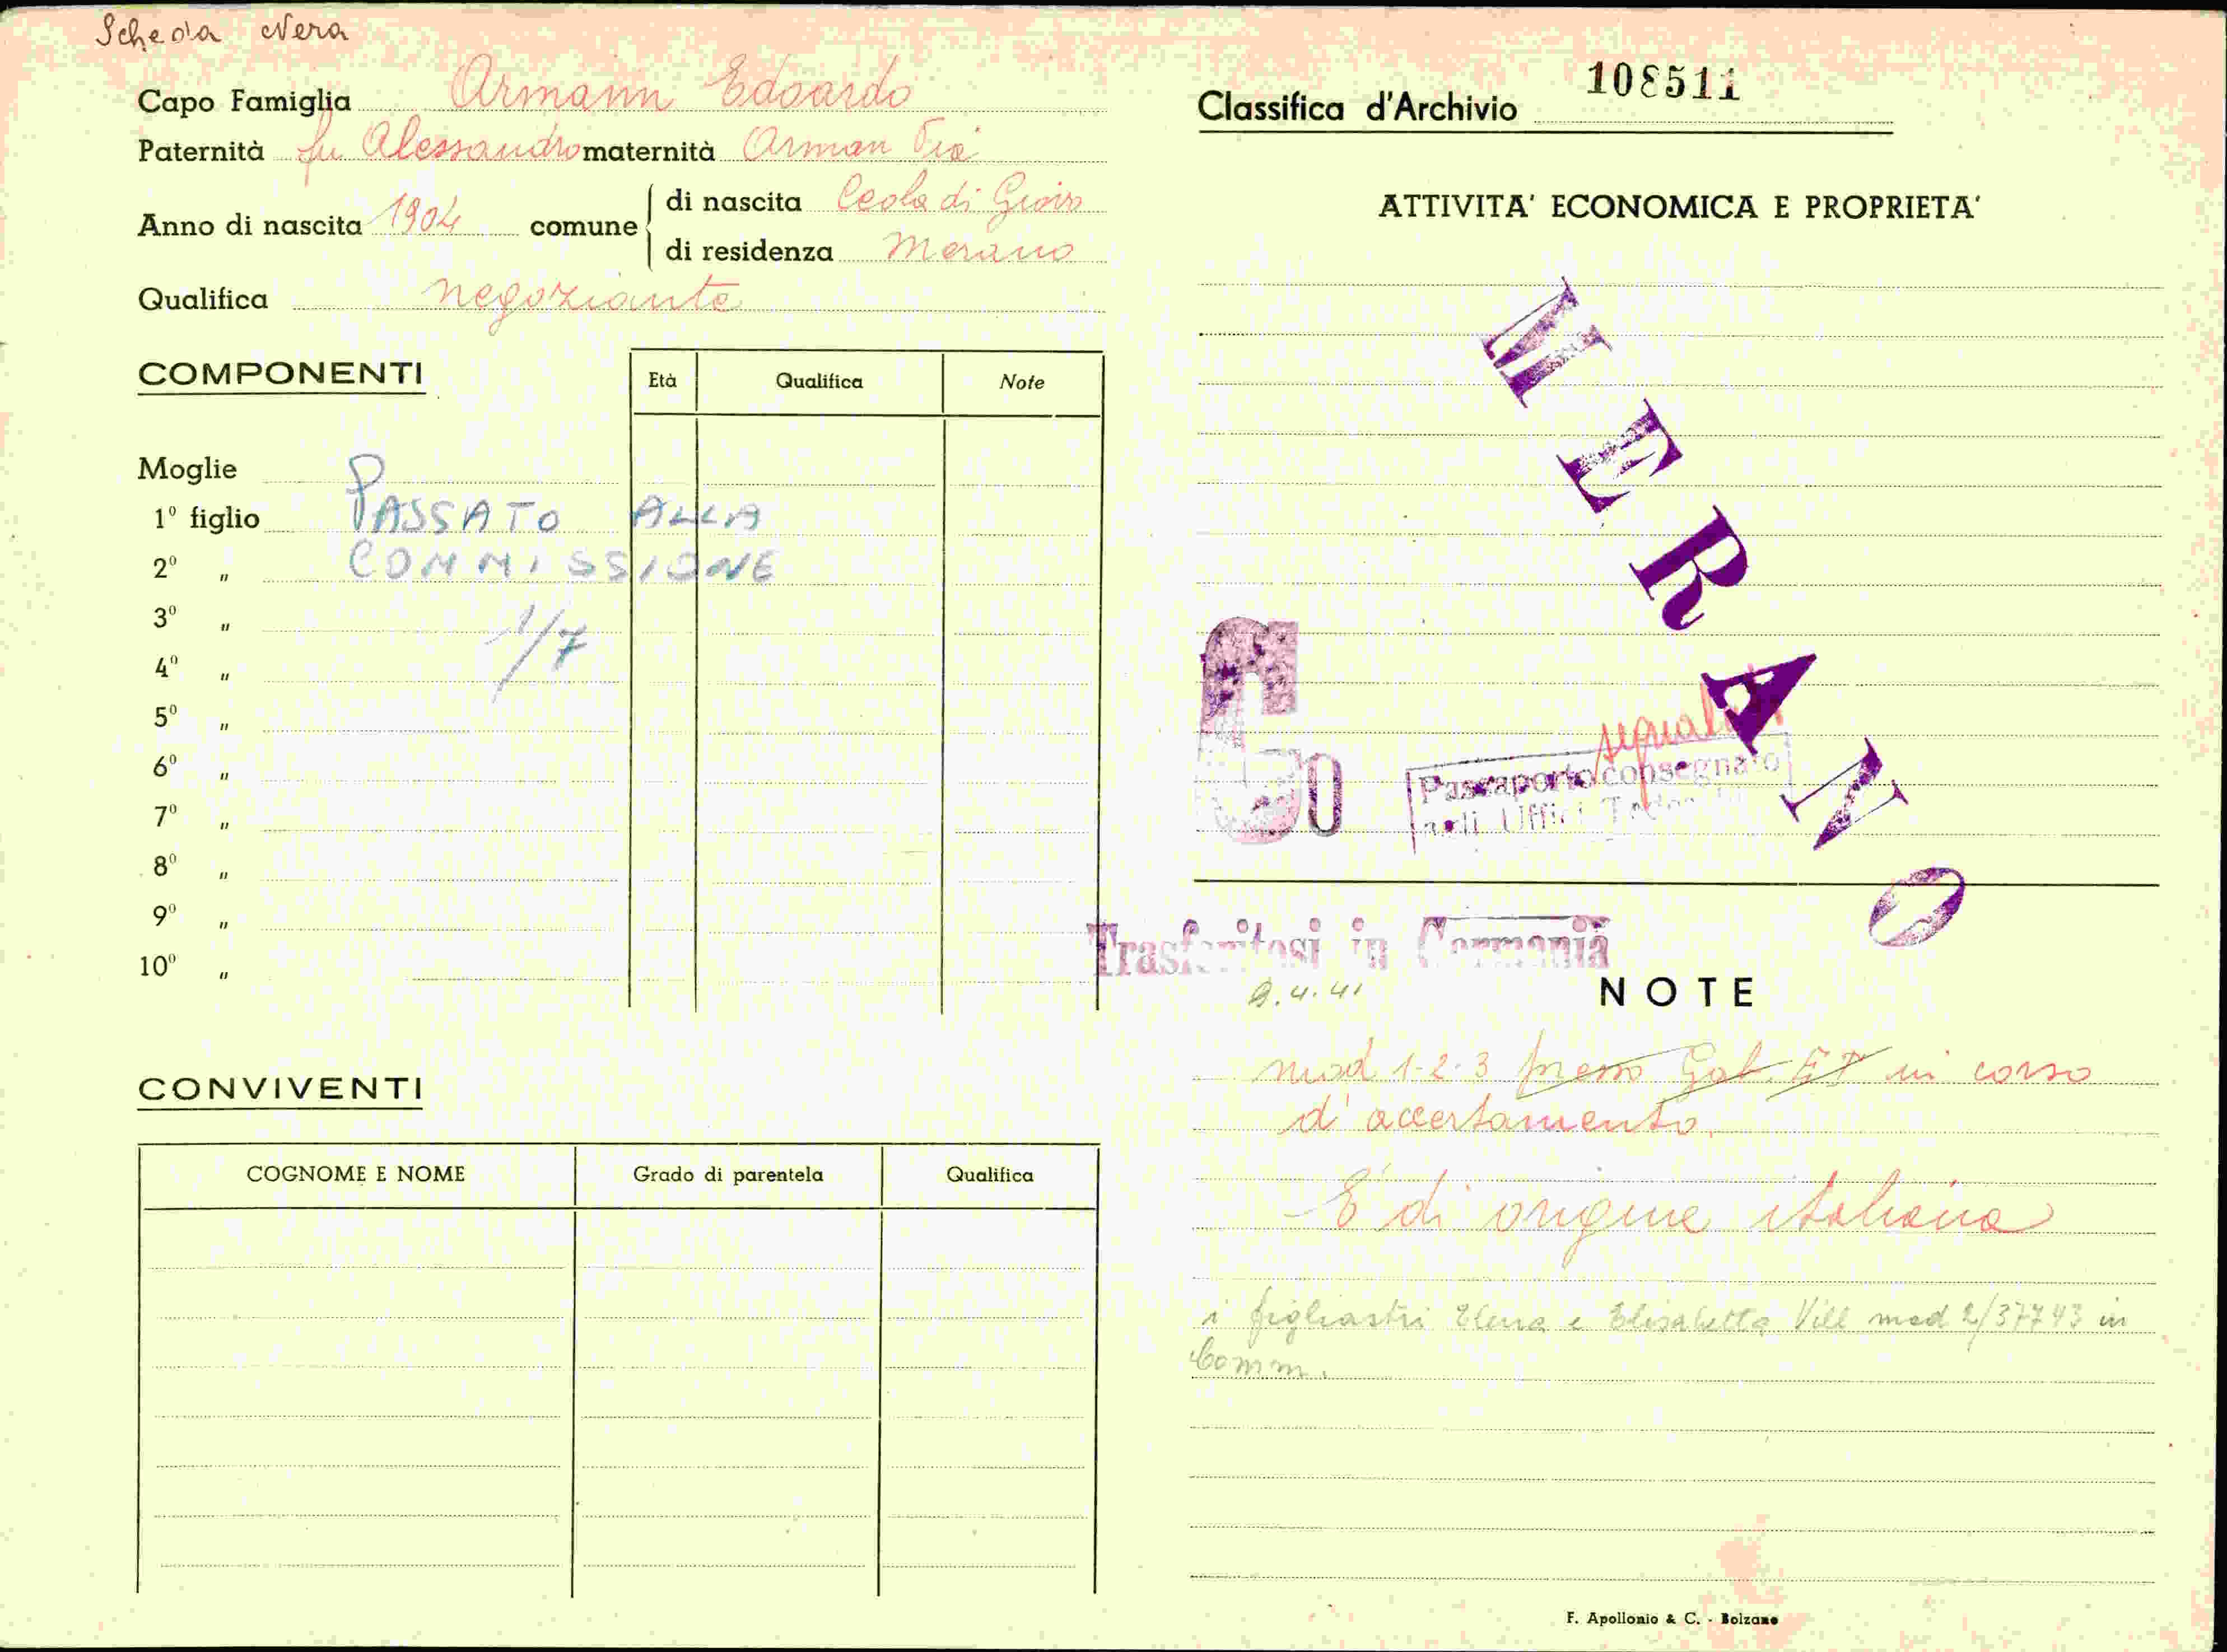 Scheda Nera
Capo Famiglia Armann Edoardo
Paternità fu Alessandro maternità Arman Pia
Anno di nascita 1904 comune
di nascita Ceola di Giovo
di residenza Merano
Qualifica negoziante
COMPONENTI
Età Qualifica Note
Moglie
1º figlio PASSATO ALLA
2º " COMMISSIONE
3º " 1/7
4º "
5º "
6º "
7º "
8º "
9º "
10º "
CONVIVENTI
COGNOME E NOME Grado di parentela Qualifica
Classifica d'Archivio 108511
ATTIVITA' ECONOMICA E PROPRIETA'
MERANO
Passaporto consegnato
agli Uffici Tedeschi
Trasferitosi in Germania
9.4.41
NOTE
mod 1-2-3 presso Gab. ET in corso
d'accertamento.
E' di origine italiana
i figliastri Elena e Elisabetta Vill mod 2/37743 in
Comm.
F. Apollonio & C. - Bolzano